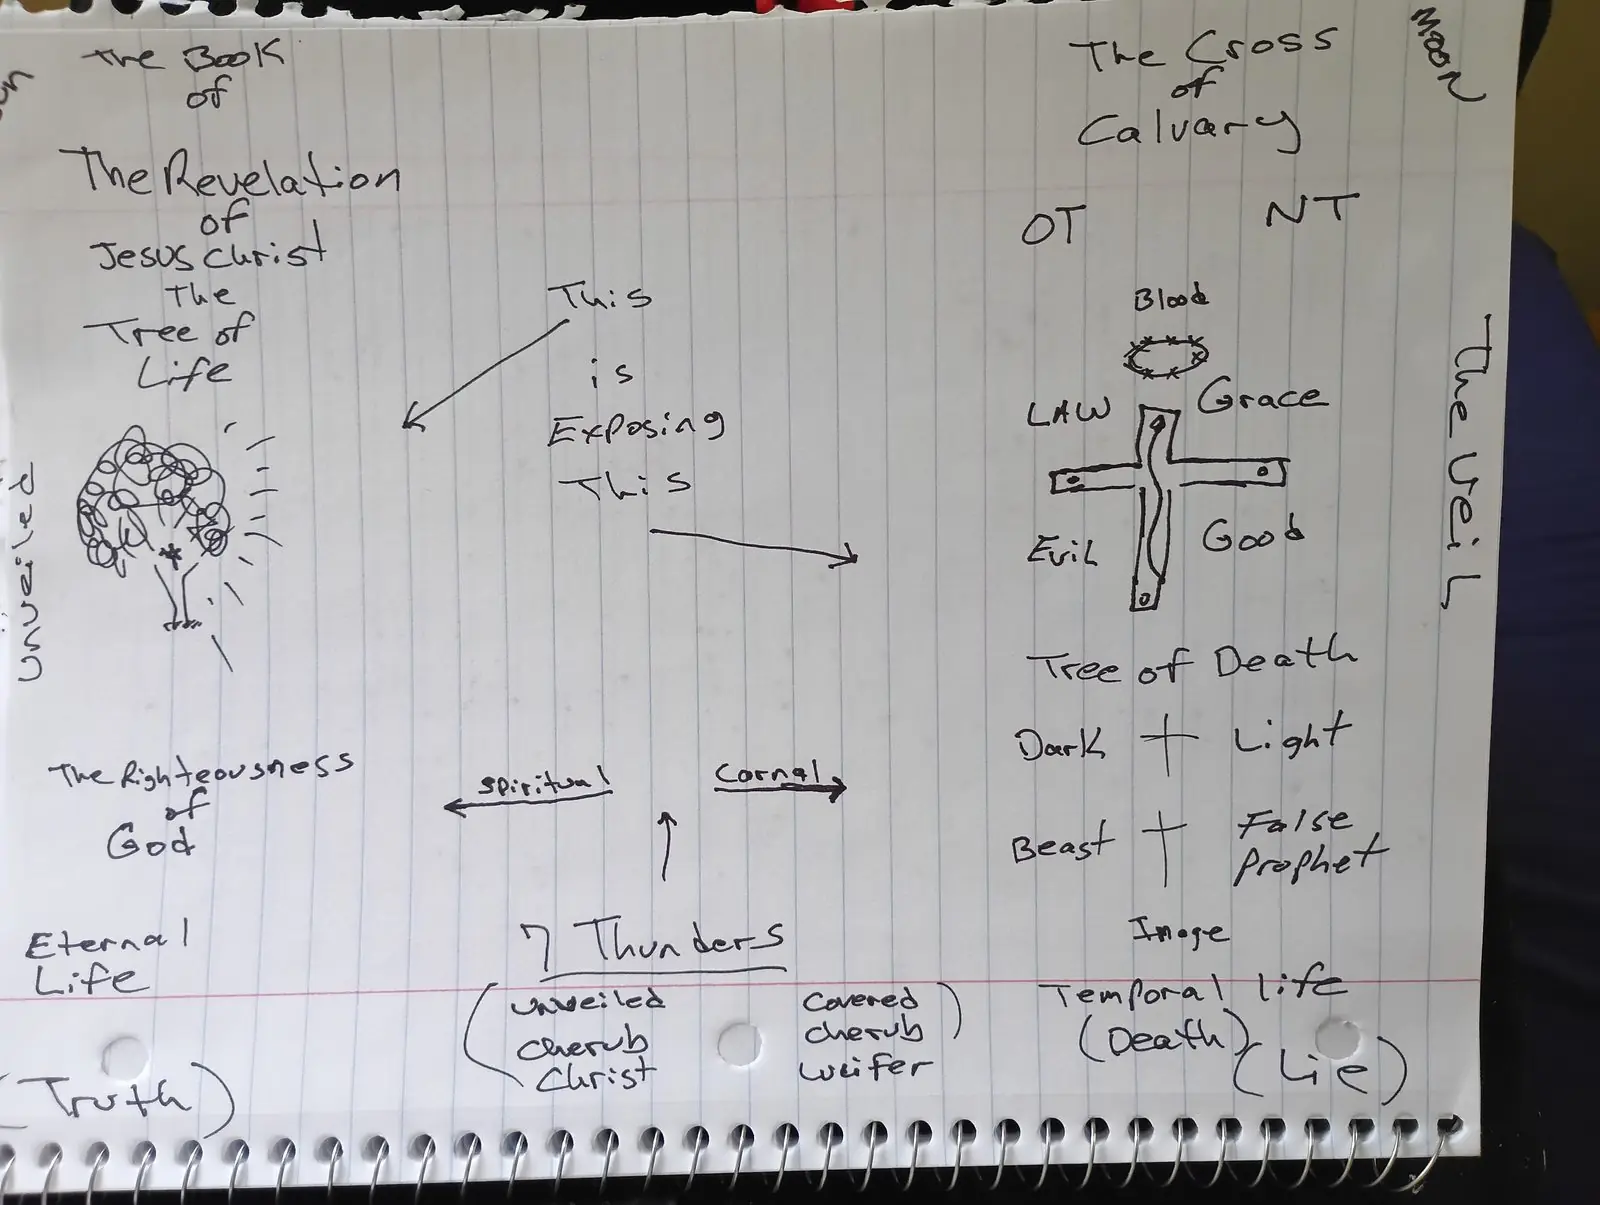 The Book
of
The Revelation
of
Jesus Christ
The
Tree of
Life
unveiled
The Righteousness
of
God
Eternal
Life
(Truth)
This
is
Exposing
This
spiritual
Carnal
7 Thunders
(unveiled
cherub
Christ
covered)
cherub
Lucifer
The Cross
of
Calvary
MOON
OT NT
Blood
LAW Grace
Evil Good
The Veil
Tree of Death
Dark Light
Beast False
Prophet
Image
Temporal Life
(Death)
(Lie)